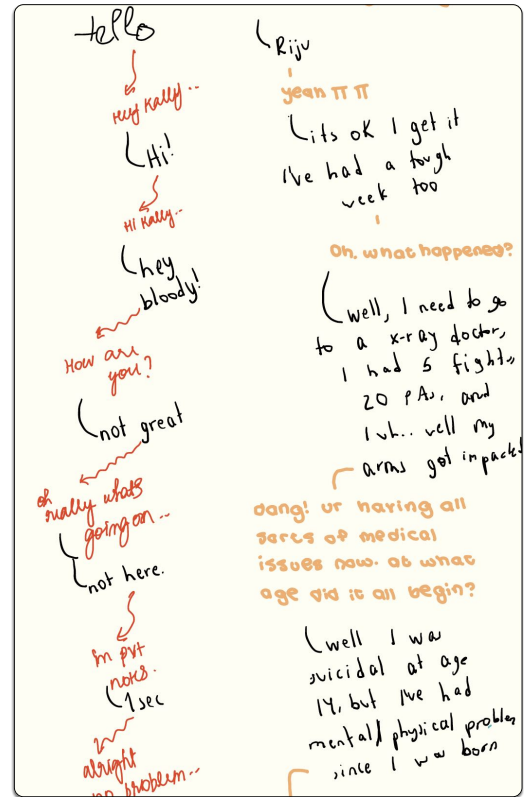 Hello
Hey Kally..
Hi!
Hi Kally..
hey
bloody!
How are
you?
not great
oh
really whats
going on..
not here.
In pvt
notes.
1 sec
alright
no problem..
Riju
yeah TT TT
its ok I get it
I've had a tough
week too
Oh, what happened?
well, I need to go
to a x-ray doctor,
I had 5 fights,
20 PAs, and
I uh.. well my
arms got impacted
dang! ur having all
sorts of medical
issues now. at what
age did it all begin?
well I was
suicidal at age
14, but I've had
mental/physical problem
since I was born